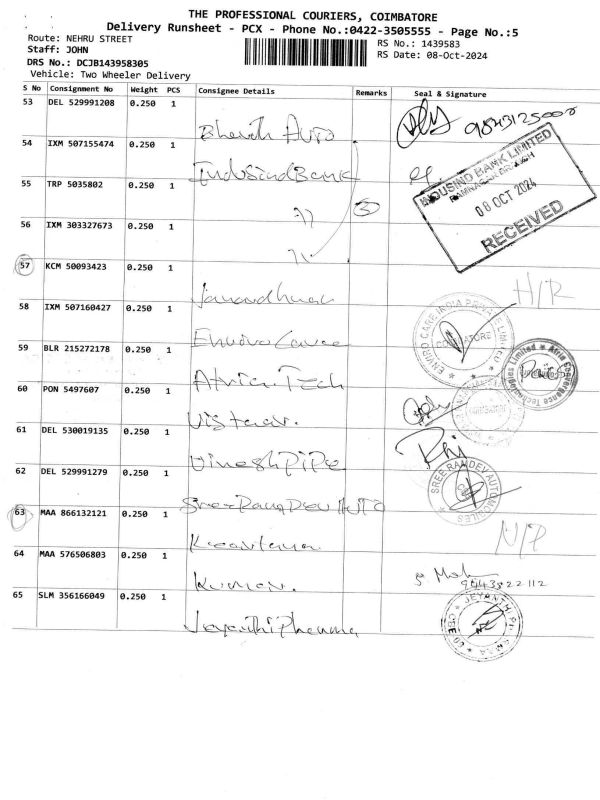 THE PROFESSIONAL COURIERS, COIMBATORE
Delivery Runsheet - PCX - Phone No.:0422-3505555 - Page No.:5
Route: NEHRU STREET
RS No.: 1439583
Staff: JOHN
RS Date: 08-Oct-2024
DRS No.: DCJB143958305
Vehicle: Two Wheeler Delivery
S No Consignment No Weight PCS Consignee Details Remarks Seal & Signature
53 DEL 529991208 0.250 1
Bharath Auto
9843125008
54 IXM 507155474 0.250 1
IndusindBank
INDUSIND BANK LIMITED
RAMNAGAR BRANCH
08 OCT 2024
RECEIVED
55 TRP 5035802 0.250 1
③
56 IXM 303327673 0.250 1
57 KCM 50093423 0.250 1
Janardhnan
58 IXM 507160427 0.250 1
Enviro Care
ENVIRO CARE INDIA PRIVATE LIMITED
COIMBATORE
59 BLR 215272178 0.250 1
Atrie Tech
60 PON 5497607 0.250 1
Vistaar.
61 DEL 530019135 0.250 1
VineshPipe
62 DEL 529991279 0.250 1
Sree Ram Dev AUTO
SREE RAMDEV AUTOMOBILES
63 MAA 866132121 0.250 1
64 MAA 576506803 0.250 1
Kumar.
65 SLM 356166049 0.250 1
JeyanthiPharma